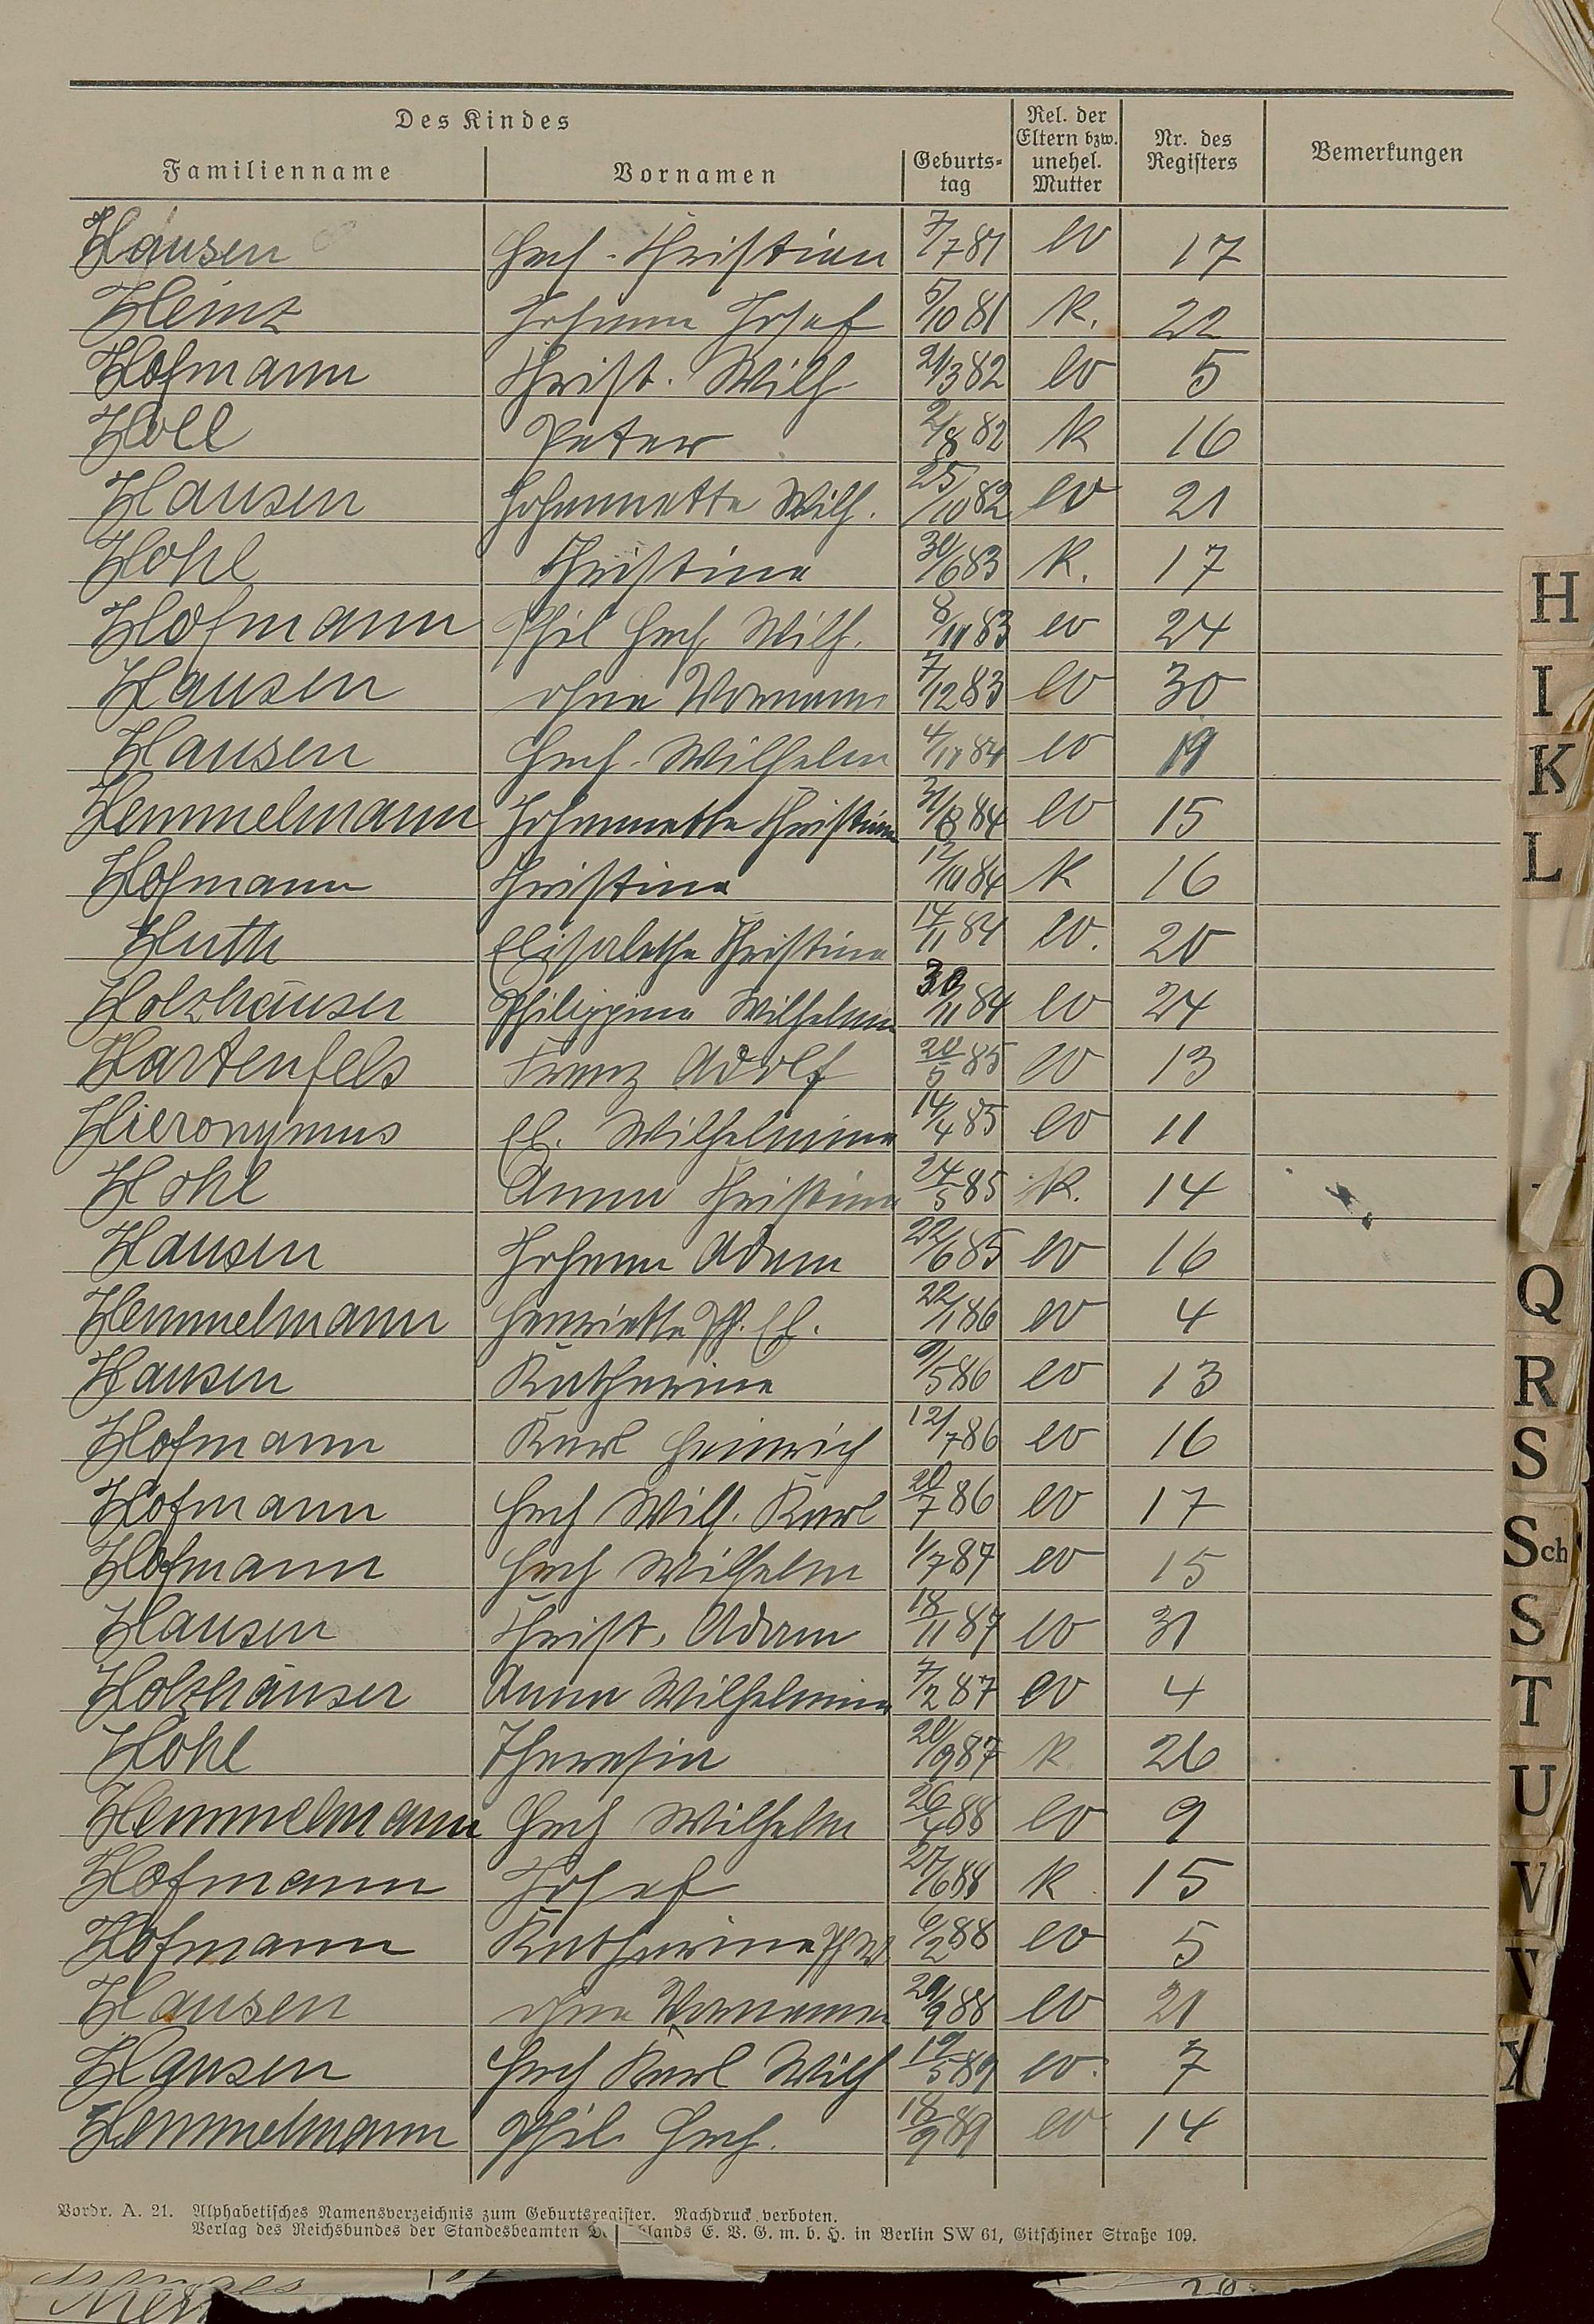 Des Kindes
Familienname Vornamen Geburts-tag Rel. der Eltern bzw. unehel. Mutter Nr. des Registers Bemerkungen
Hausen Hch. Christian 7/7 81 ev 17
Heinz Johann Josef 5/10 81 k. 22
Hofmann Christ. Wilh 21/3 82 ev 5
Holl Peter 2/8 82 k 16
Hausen Johannette Wilh. 25/10 82 ev 21
Hohl Christina 30/6 83 k. 17
Hofmann Phil Hch Wilh. 8/11 83 ev 24
Hausen ohne Vornamen 7/12 83 ev 30
Hausen Hch. Wilhelm 4/11 84 ev 19
Hemmelmann Johannette Christina 31/8 84 ev 15
Hofmann Christina 12/10 84 k 16
Huth Elisabetha Christina 14/11 84 ev. 20
Holzhäuser Philippina Wilhelmina 30/11 84 ev 24
Hartenfels Franz Adolf 20/5 85 ev 13
Hieronymus El. Wilhelmina 14/4 85 ev 11
Hohl Anna Christina 24/5 85 k. 14
Hausen Johann Adam 22/6 85 ev 16
Hemmelmann Henriette Ph. El. 22/1 86 ev 4
Hausen Katharina 9/5 86 ev 13
Hofmann Karl Heinrich 12/7 86 ev 16
Hofmann Hch Wilh. Karl 20/7 86 ev 17
Hofmann Hch Wilhelm 1/7 87 ev 15
Hausen Christ. Adam 18/11 87 ev 31
Holzhäuser Anna Wilhelmina 7/2 87 ev 4
Hohl Theresia 20/9 87 k 26
Hemmelmann Hch Wilhelm 26/4 88 ev 9
Hofmann Josef 27/6 88 k 15
Hofmann Katharina Ph W 6/2 88 ev 5
Hausen ohne Vornamen 29/9 88 ev 21
Hausen Hch Karl Wilh 19/5 89 ev. 7
Hemmelmann Phil. Hch. 18/9 89 ev 14
Vordr. A. 21. Alphabetisches Namensverzeichnis zum Geburtsregister. Nachdruck verboten.
Verlag des Reichsbundes der Standesbeamten lands E. V. G. m. b. H. in Berlin SW 61, Gitschiner Straße 109.
H
I
K
L
Q
R
S
Sch
S
T
U
V
V
X